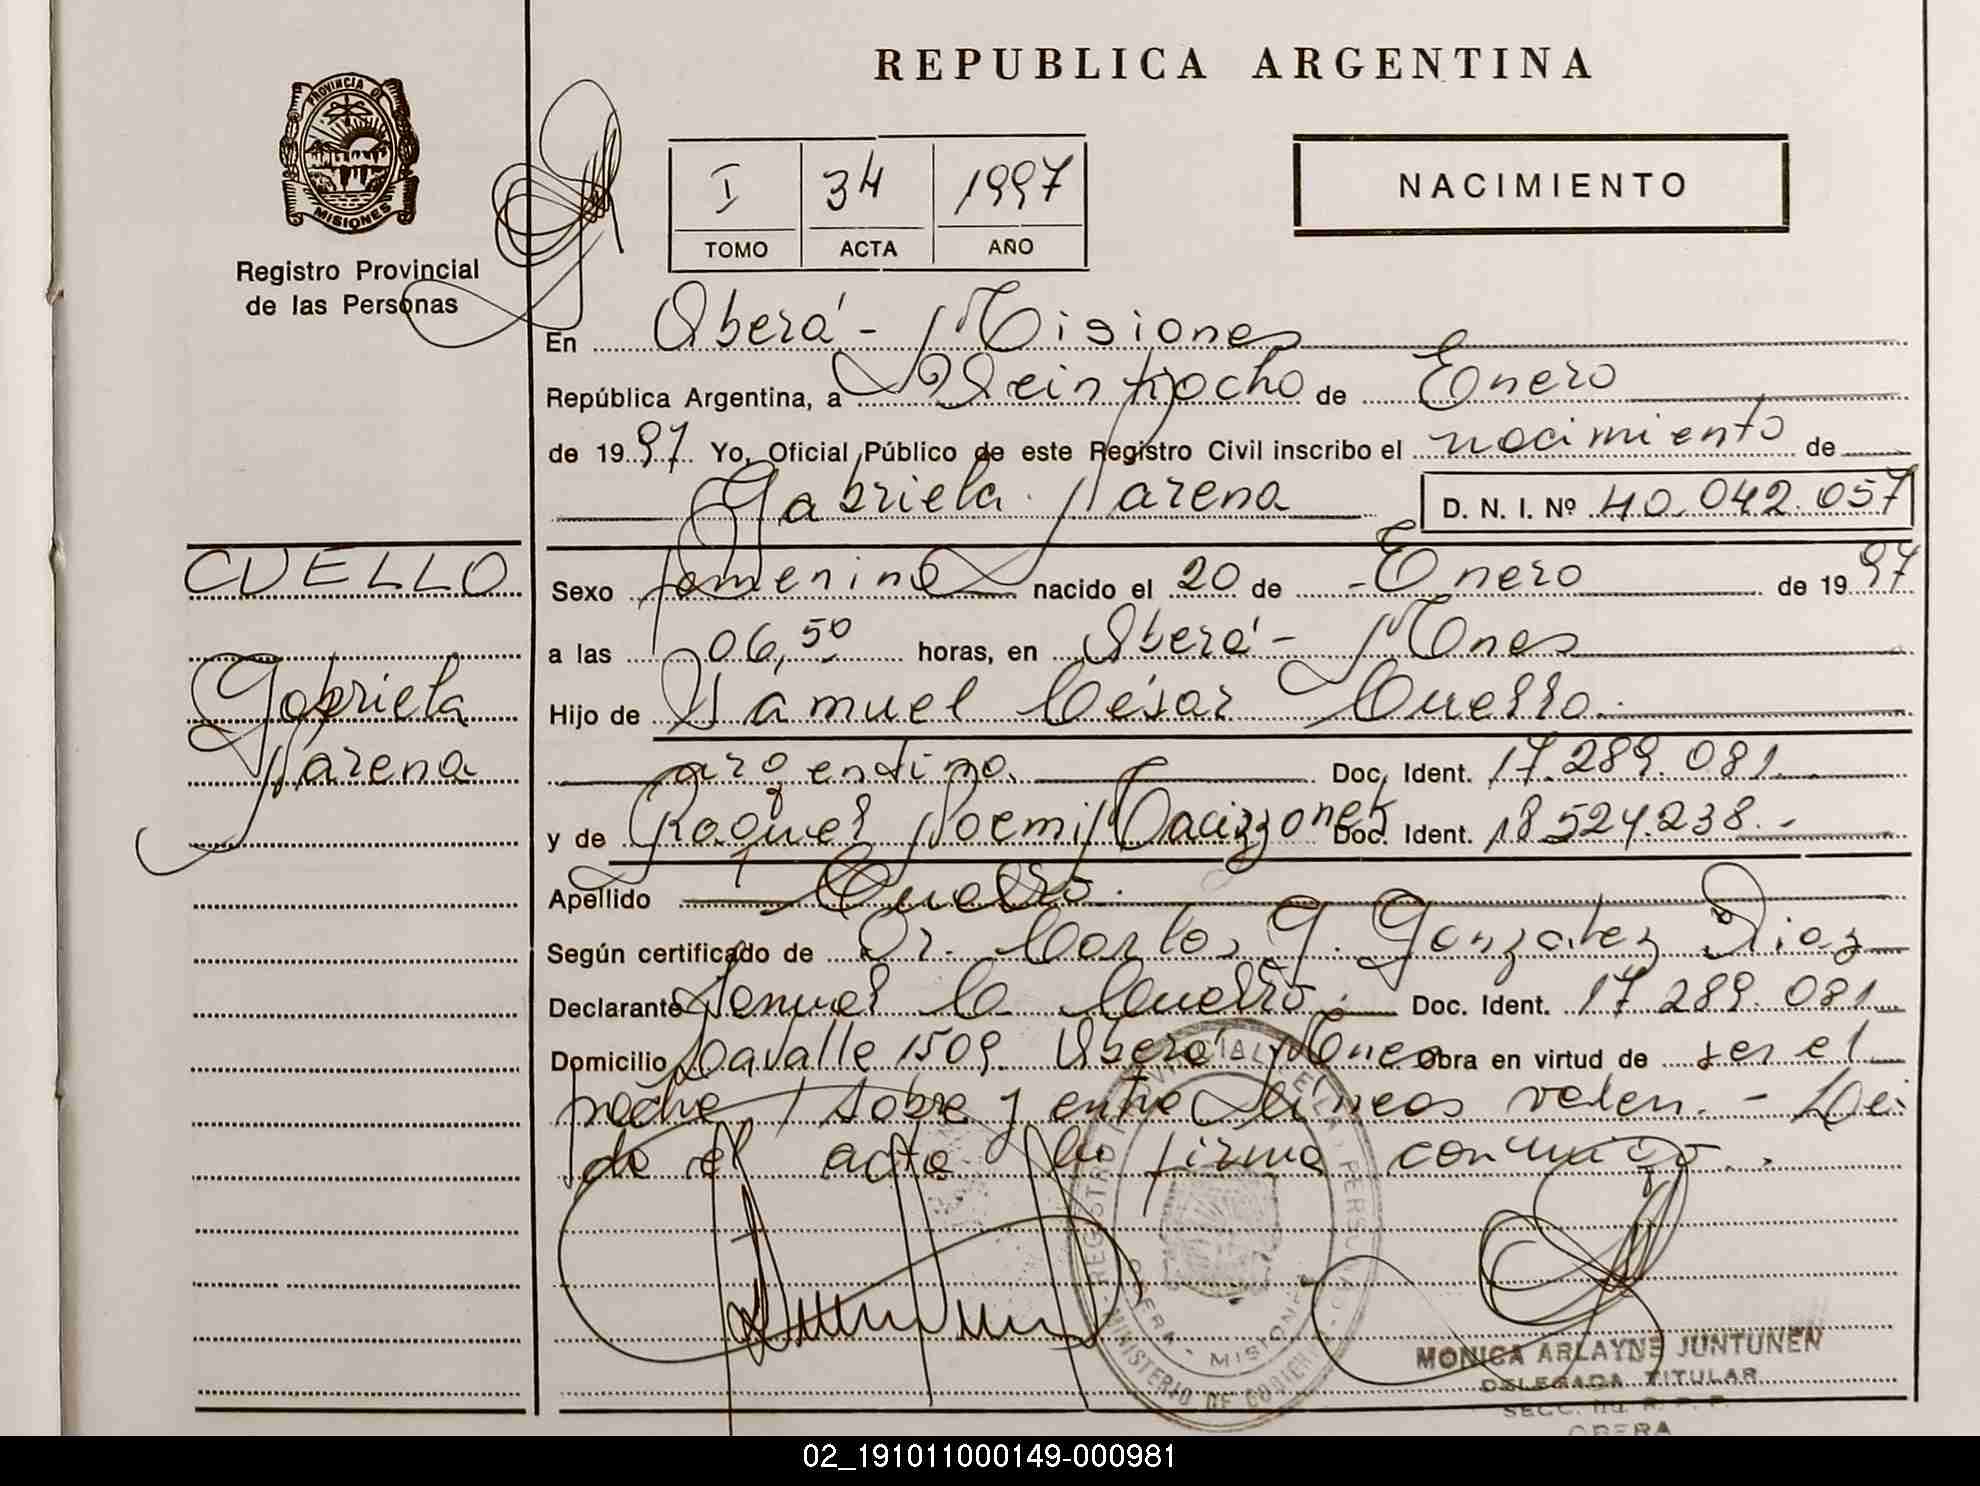 REPUBLICA ARGENTINA
PROVINCIA DE
MISIONES
Registro Provincial
de las Personas
I 34 1997
TOMO ACTA AÑO
NACIMIENTO
En Oberá - Misiones
República Argentina, a Veintiocho de Enero
de 1997 Yo, Oficial Público de este Registro Civil inscribo el nacimiento de
Gabriela Narena D. N. I. Nº 40.042.057
CUELLO
Gabriela
Narena
Sexo femenino nacido el 20 de Enero de 1997
a las 06,50 horas, en Oberá - Mnes
Hijo de Samuel César Cuello.
argentino. Doc. Ident. 17.289.081
y de Raquel Noemi Doc. Ident. 18.524.238.-
Apellido Cuello.
Según certificado de Dr. Carlos G. Gonzalez Diaz
Declarante Samuel C. Cuello. Doc. Ident. 17.289.081
Domicilio Lavalle 1509. Oberá Mnes Obra en virtud de ser el
padre / sobre y entre líneas valen. - Lei
da el acta la firma conmigo..
MONICA ARLAYNE JUNTUNEN
DELEGADA TITULAR
SECC. R. P. P.
OBERA
02_191011000149-000981